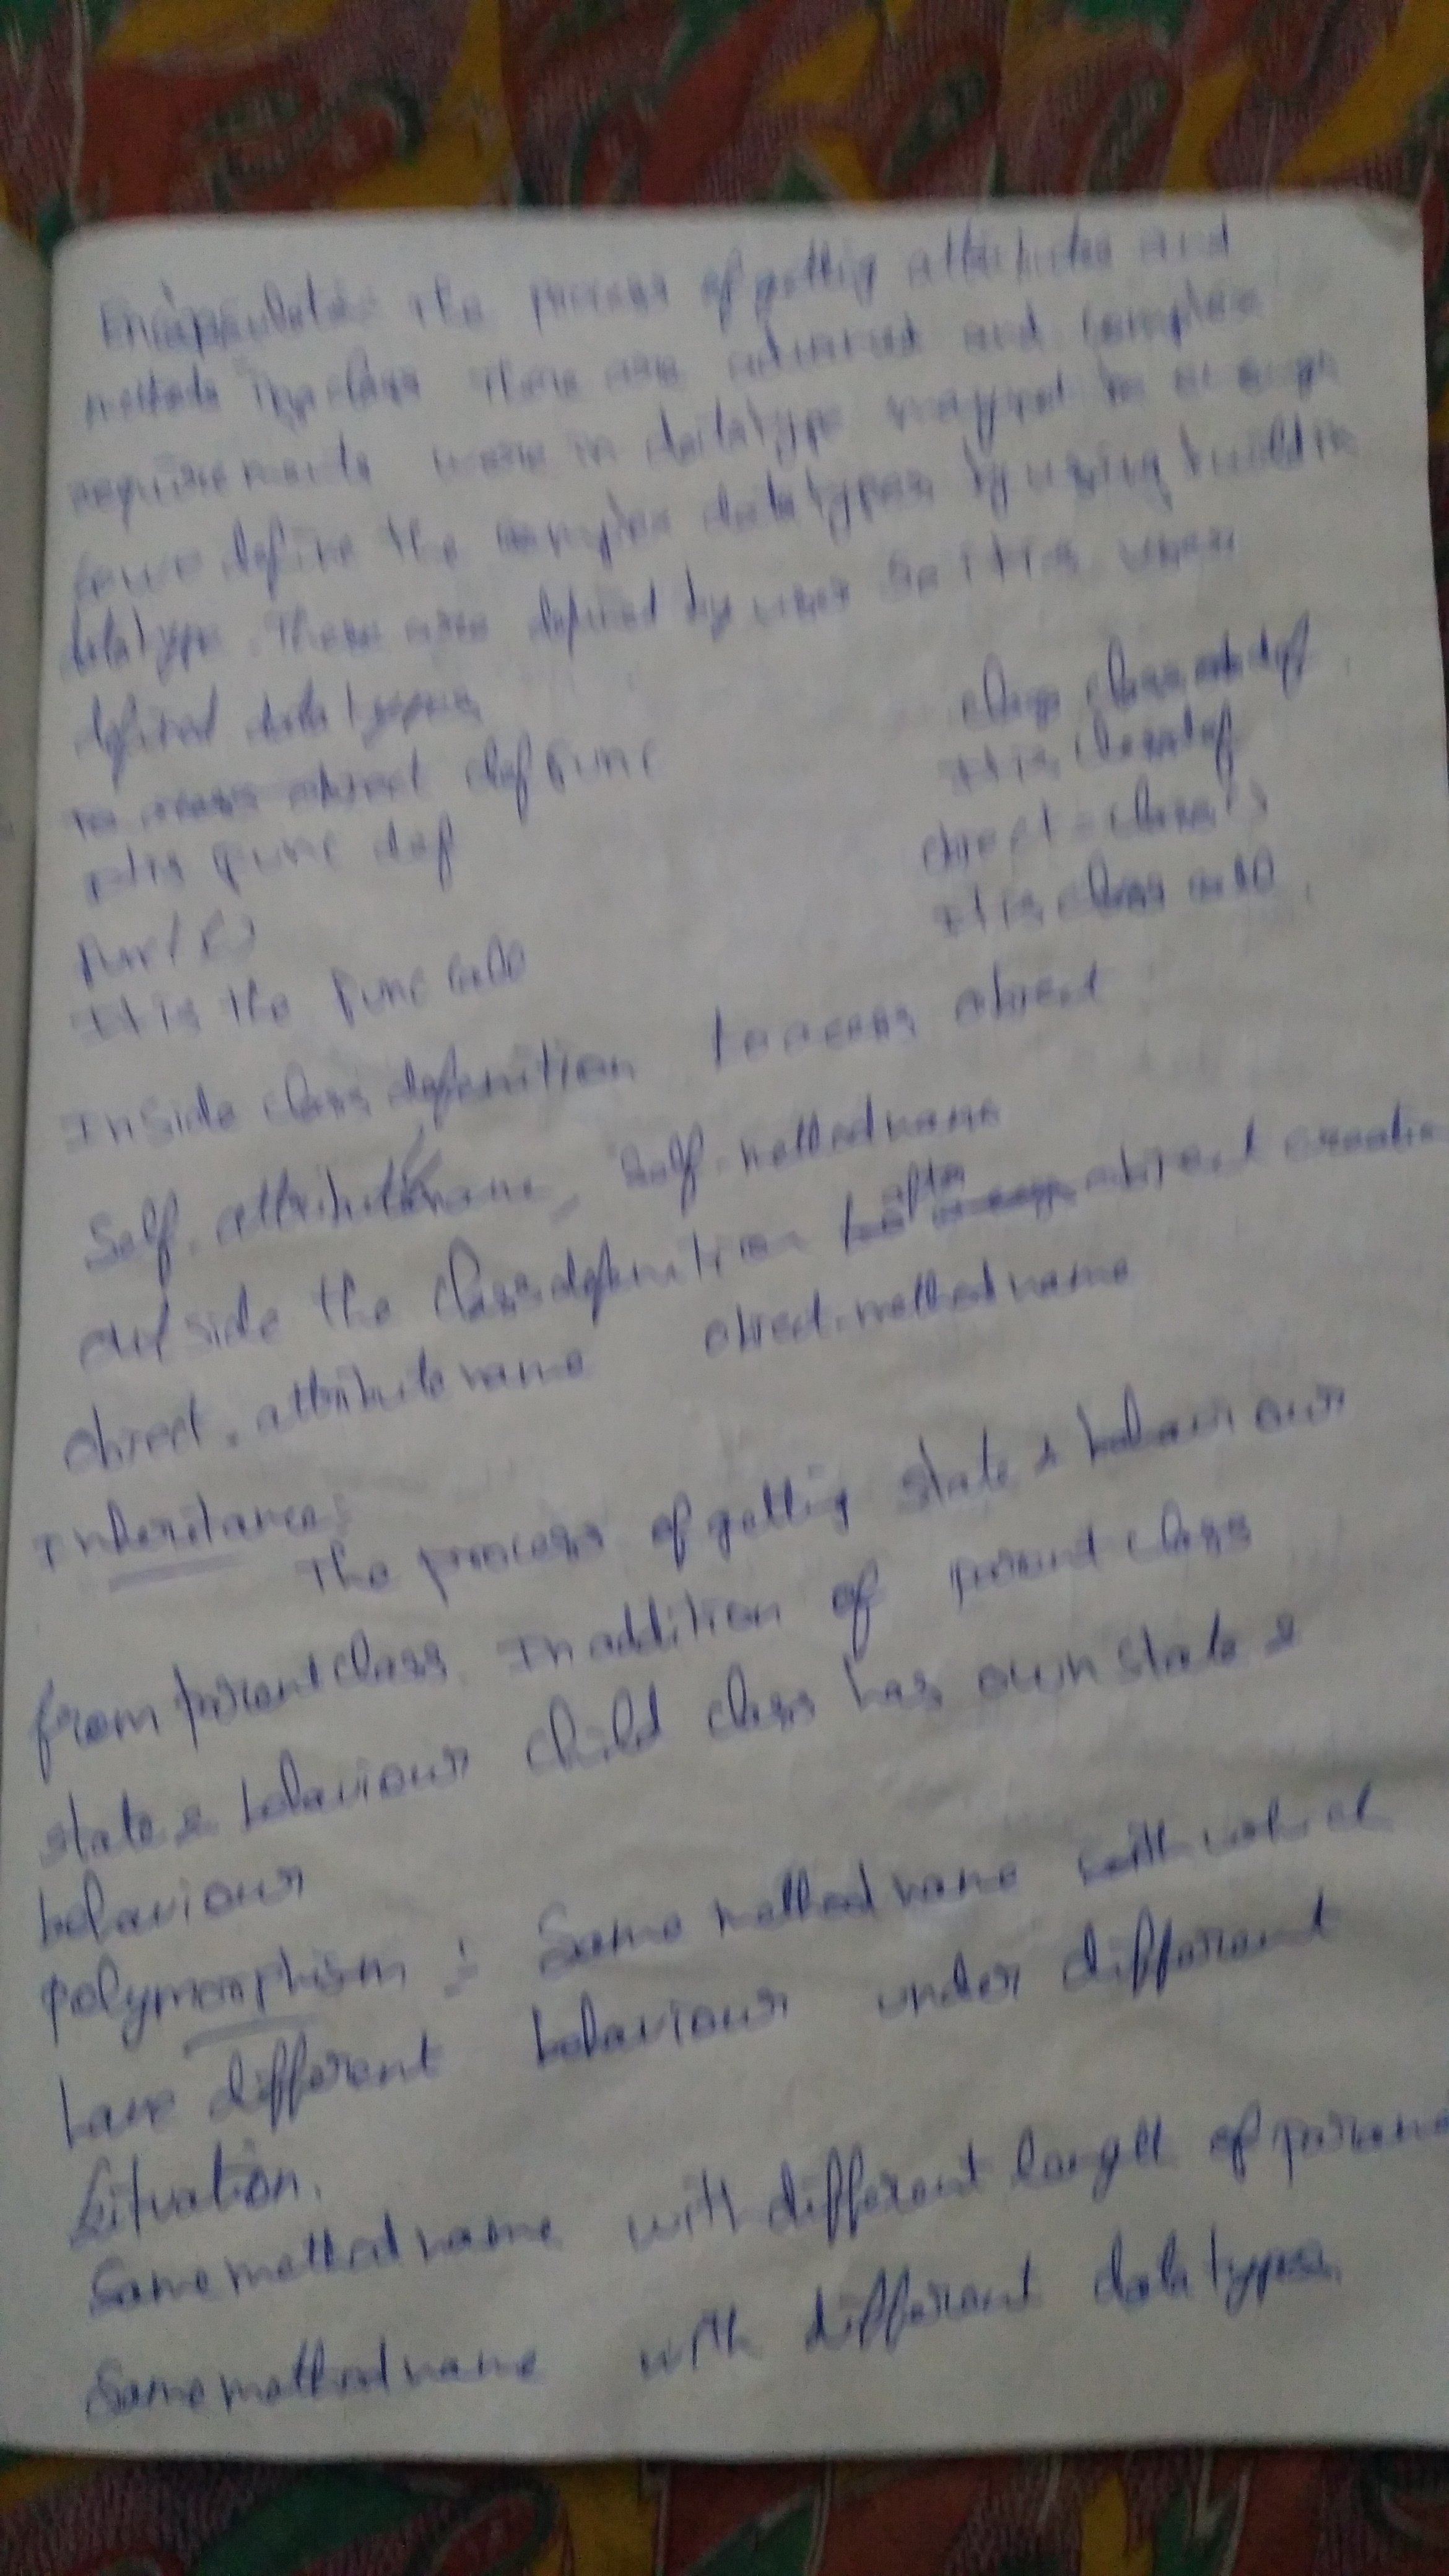 Encapsulation The process of getting attributes and
methods in class There are advanced and complex
requirements were in datatype
define the complex datatypes by using build in
datatype. These are defined by user So it is user
defined data types
to access object def func class class def
It is func def It is class def
func() object = class()
It is the func call It is class call
Inside class defenition to access object
Self. attribute name, Self. method name
outside the class defenition after object creation
object. attribute name object. method name
Inheritance:
The process of getting state & behaviour
from parent class. In addition of parent class
state & behaviour child class has own state &
behaviour
polymorphism : Same method name which
have different behaviour under different
Situation.
Same method name with different length of
Same method name with different data types.